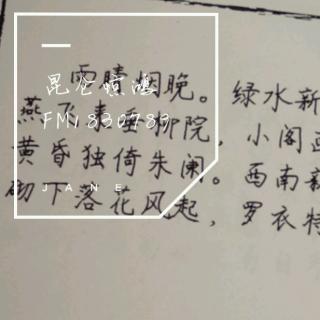 雨晴烟晚。绿水新
昆仑惊鸿
燕飞来垂柳院，小阁
FM1830783
黄昏独倚朱阑。西南新
JANE
砌下落花风起，罗衣特